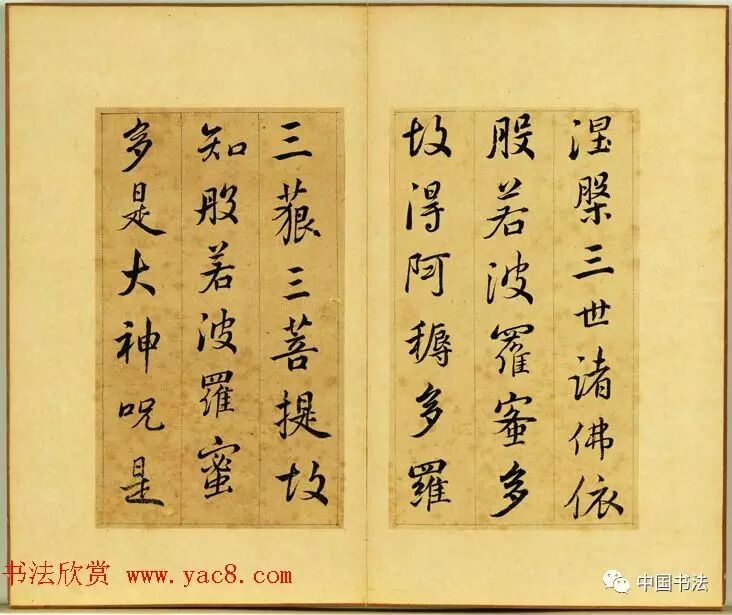 涅槃三世諸佛依
般若波羅蜜多
故得阿耨多羅
三藐三菩提故
知般若波羅蜜
多是大神呪是
书法欣赏 www.yac8.com
中国书法